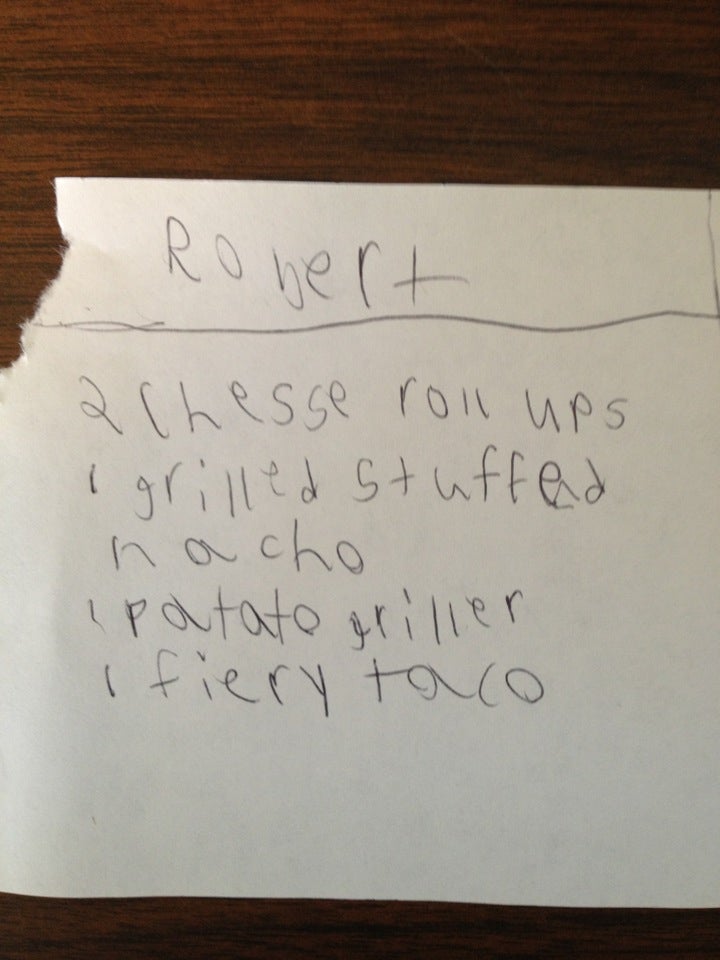 Robert
2 chesse roll ups
1 grilled stuffed
nacho
1 patato griller
1 fiery taco